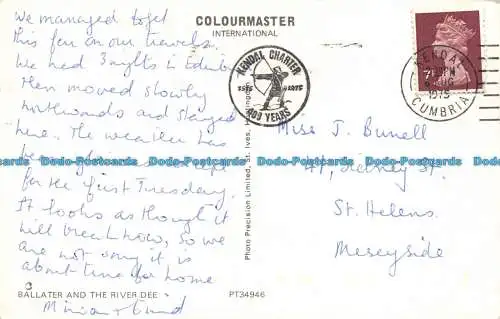 We managed to get
this far on our travels.
We had 3 nights in
then moved slowly
northwards and stayed
here. The weather has
been
for the first Tuesday.
It looks as though it
will break now, so we
are not sorry it is
about time for home
BALLATER AND THE RIVER DEE
COLOURMASTER
INTERNATIONAL
KENDAL CHARTER
1575 1975
400 YEARS
Photo Precision Limited, St. Ives, Huntingdon
PT34946
KENDAL
1975
CUMBRIA
Miss J. Bunell
St.
St. Helens.
Merseyside
Postcards Postcards Postcards Postcards Postcards Postcards